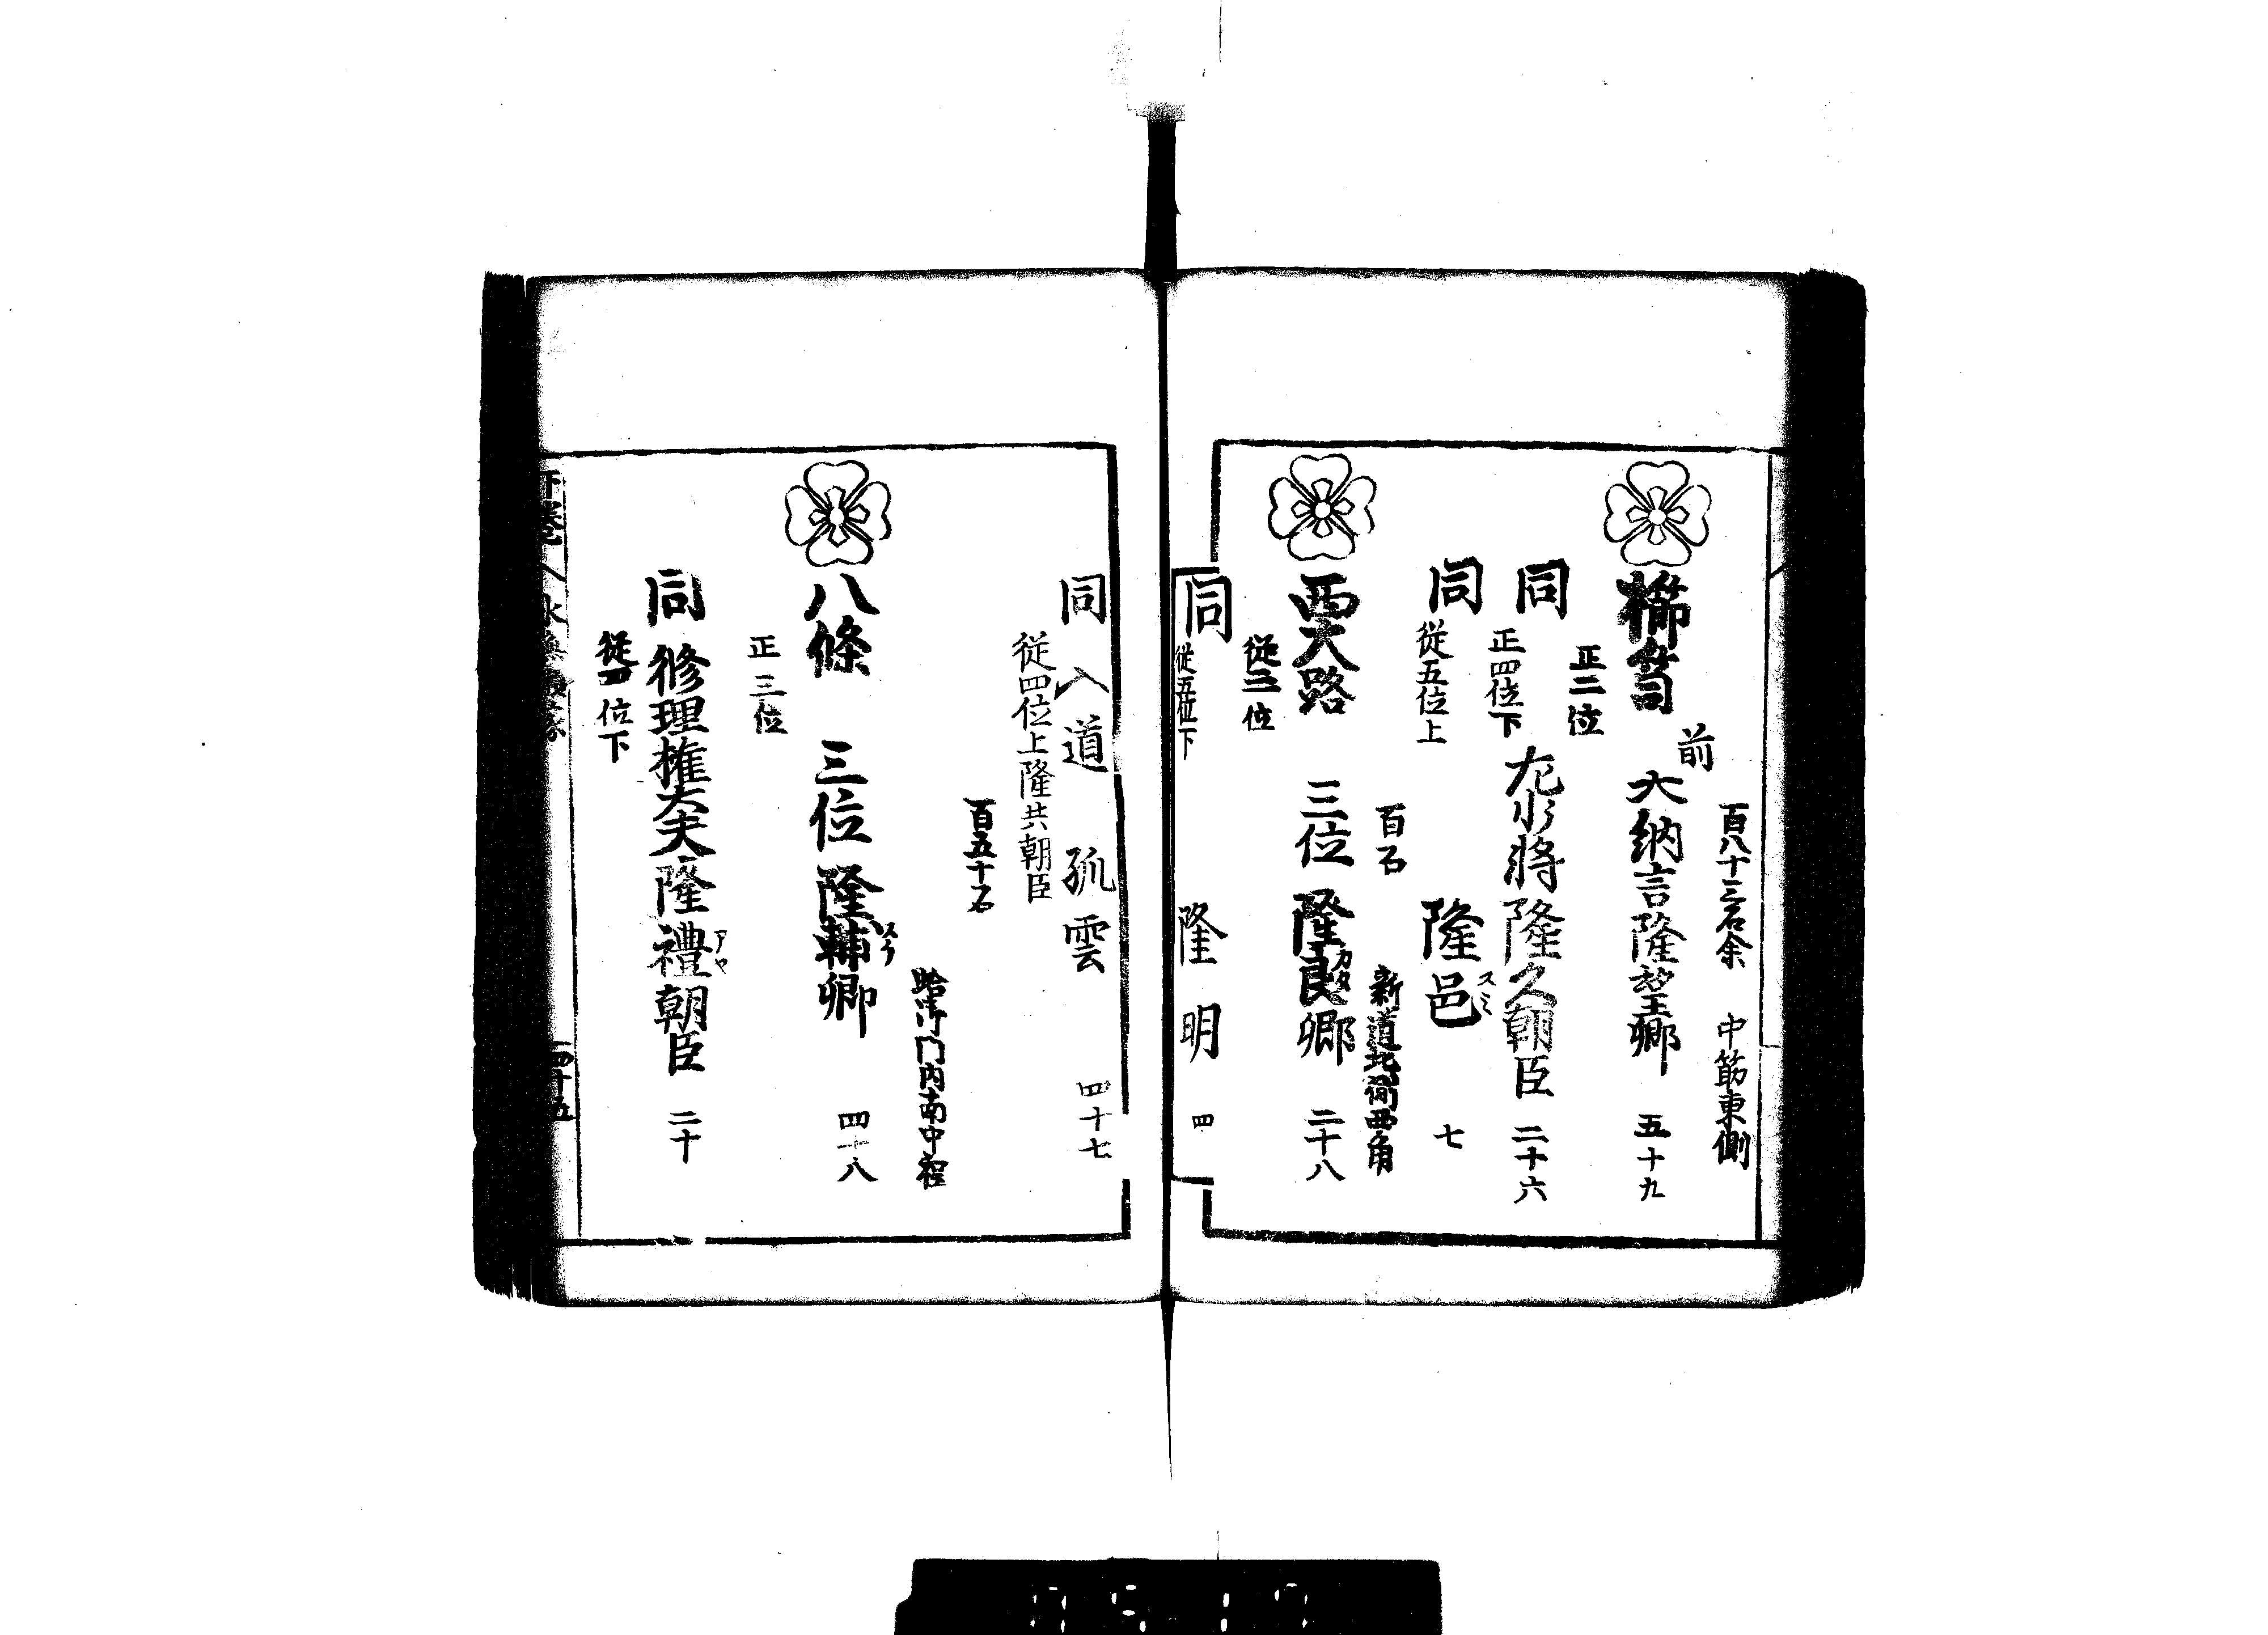 百八十三石余 中筋東側
櫛笥 前大納言隆望卿 五十九
正二位
同 左少将隆久朝臣 二十六
正四位下
同 隆邑スミ 七
従五位上
百石 新道北側西角
西大路 三位隆良カタ卿 二十八
従三位
同 隆明 四
従五位下
同入道孤雲 四十七
従四位上隆共朝臣
百五十石 蛤御門内南中程
八條 三位隆輔スケ卿 四十八
正三位
同 修理権大夫隆禮アヤ朝臣 二十
従四位下
下巻
四十五